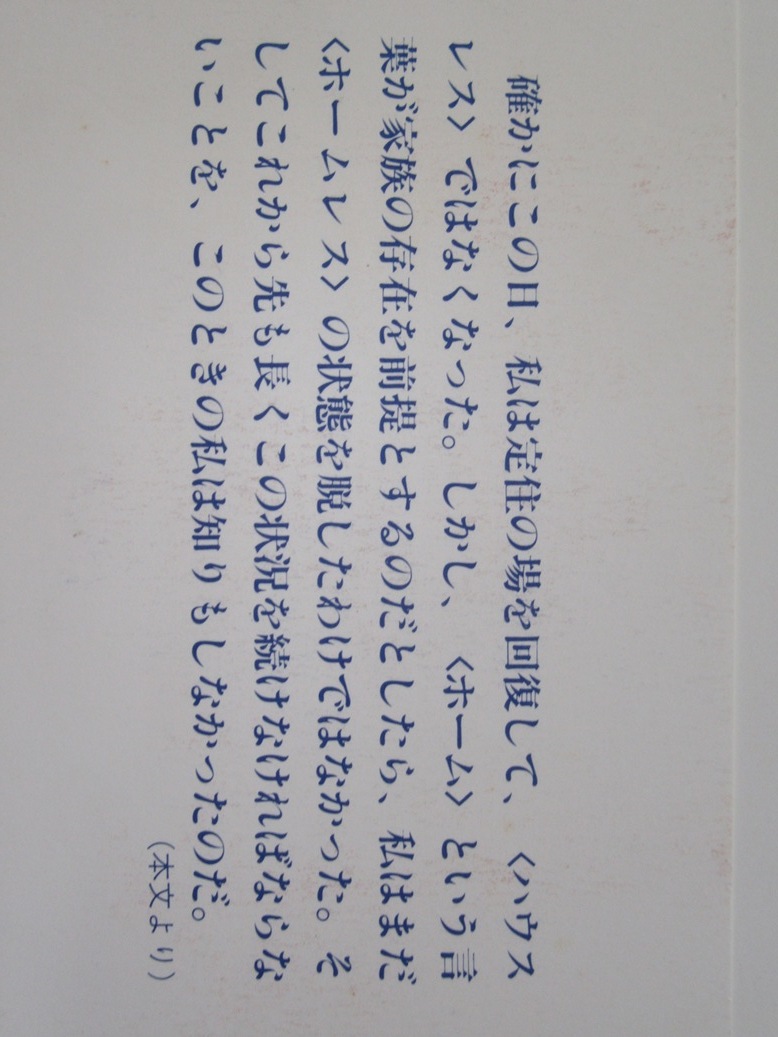 確かにこの日、私は定住の場を回復して、〈ハウス
レス〉ではなくなった。しかし、〈ホーム〉という言
葉が家族の存在を前提とするのだとしたら、私はまだ
〈ホームレス〉の状態を脱したわけではなかった。そ
してこれから先も長くこの状況を続けなければならな
いことを、このときの私は知りもしなかったのだ。
(本文より)